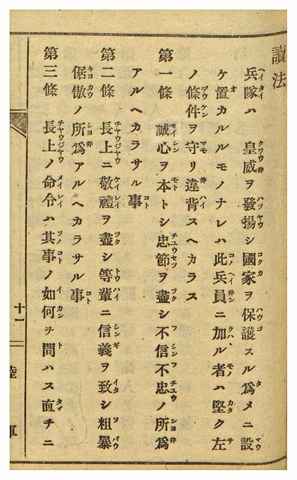 讀法
兵隊ハ 皇威ヲ發揚シ國家ヲ保護スル爲メニ設
ケ置カルルモノナレハ此兵員ニ加ル者ハ堅ク左
ノ條件ヲ守リ違背スヘカラス
第一條 誠心ヲ本トシ忠節ヲ盡シ不信不忠ノ所爲
アルヘカラサル事
第二條 長上ニ敬禮ヲ盡シ等輩ニ信義ヲ致シ粗暴
倨傲ノ所爲アルヘカラサル事
第三條 長上ノ命令ハ其事ノ如何ヲ問ハス直チニ
十一
軍